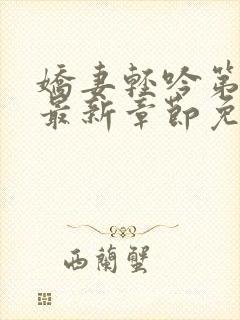 嬌妻輕吟第
最新章節免
西蘭蟹